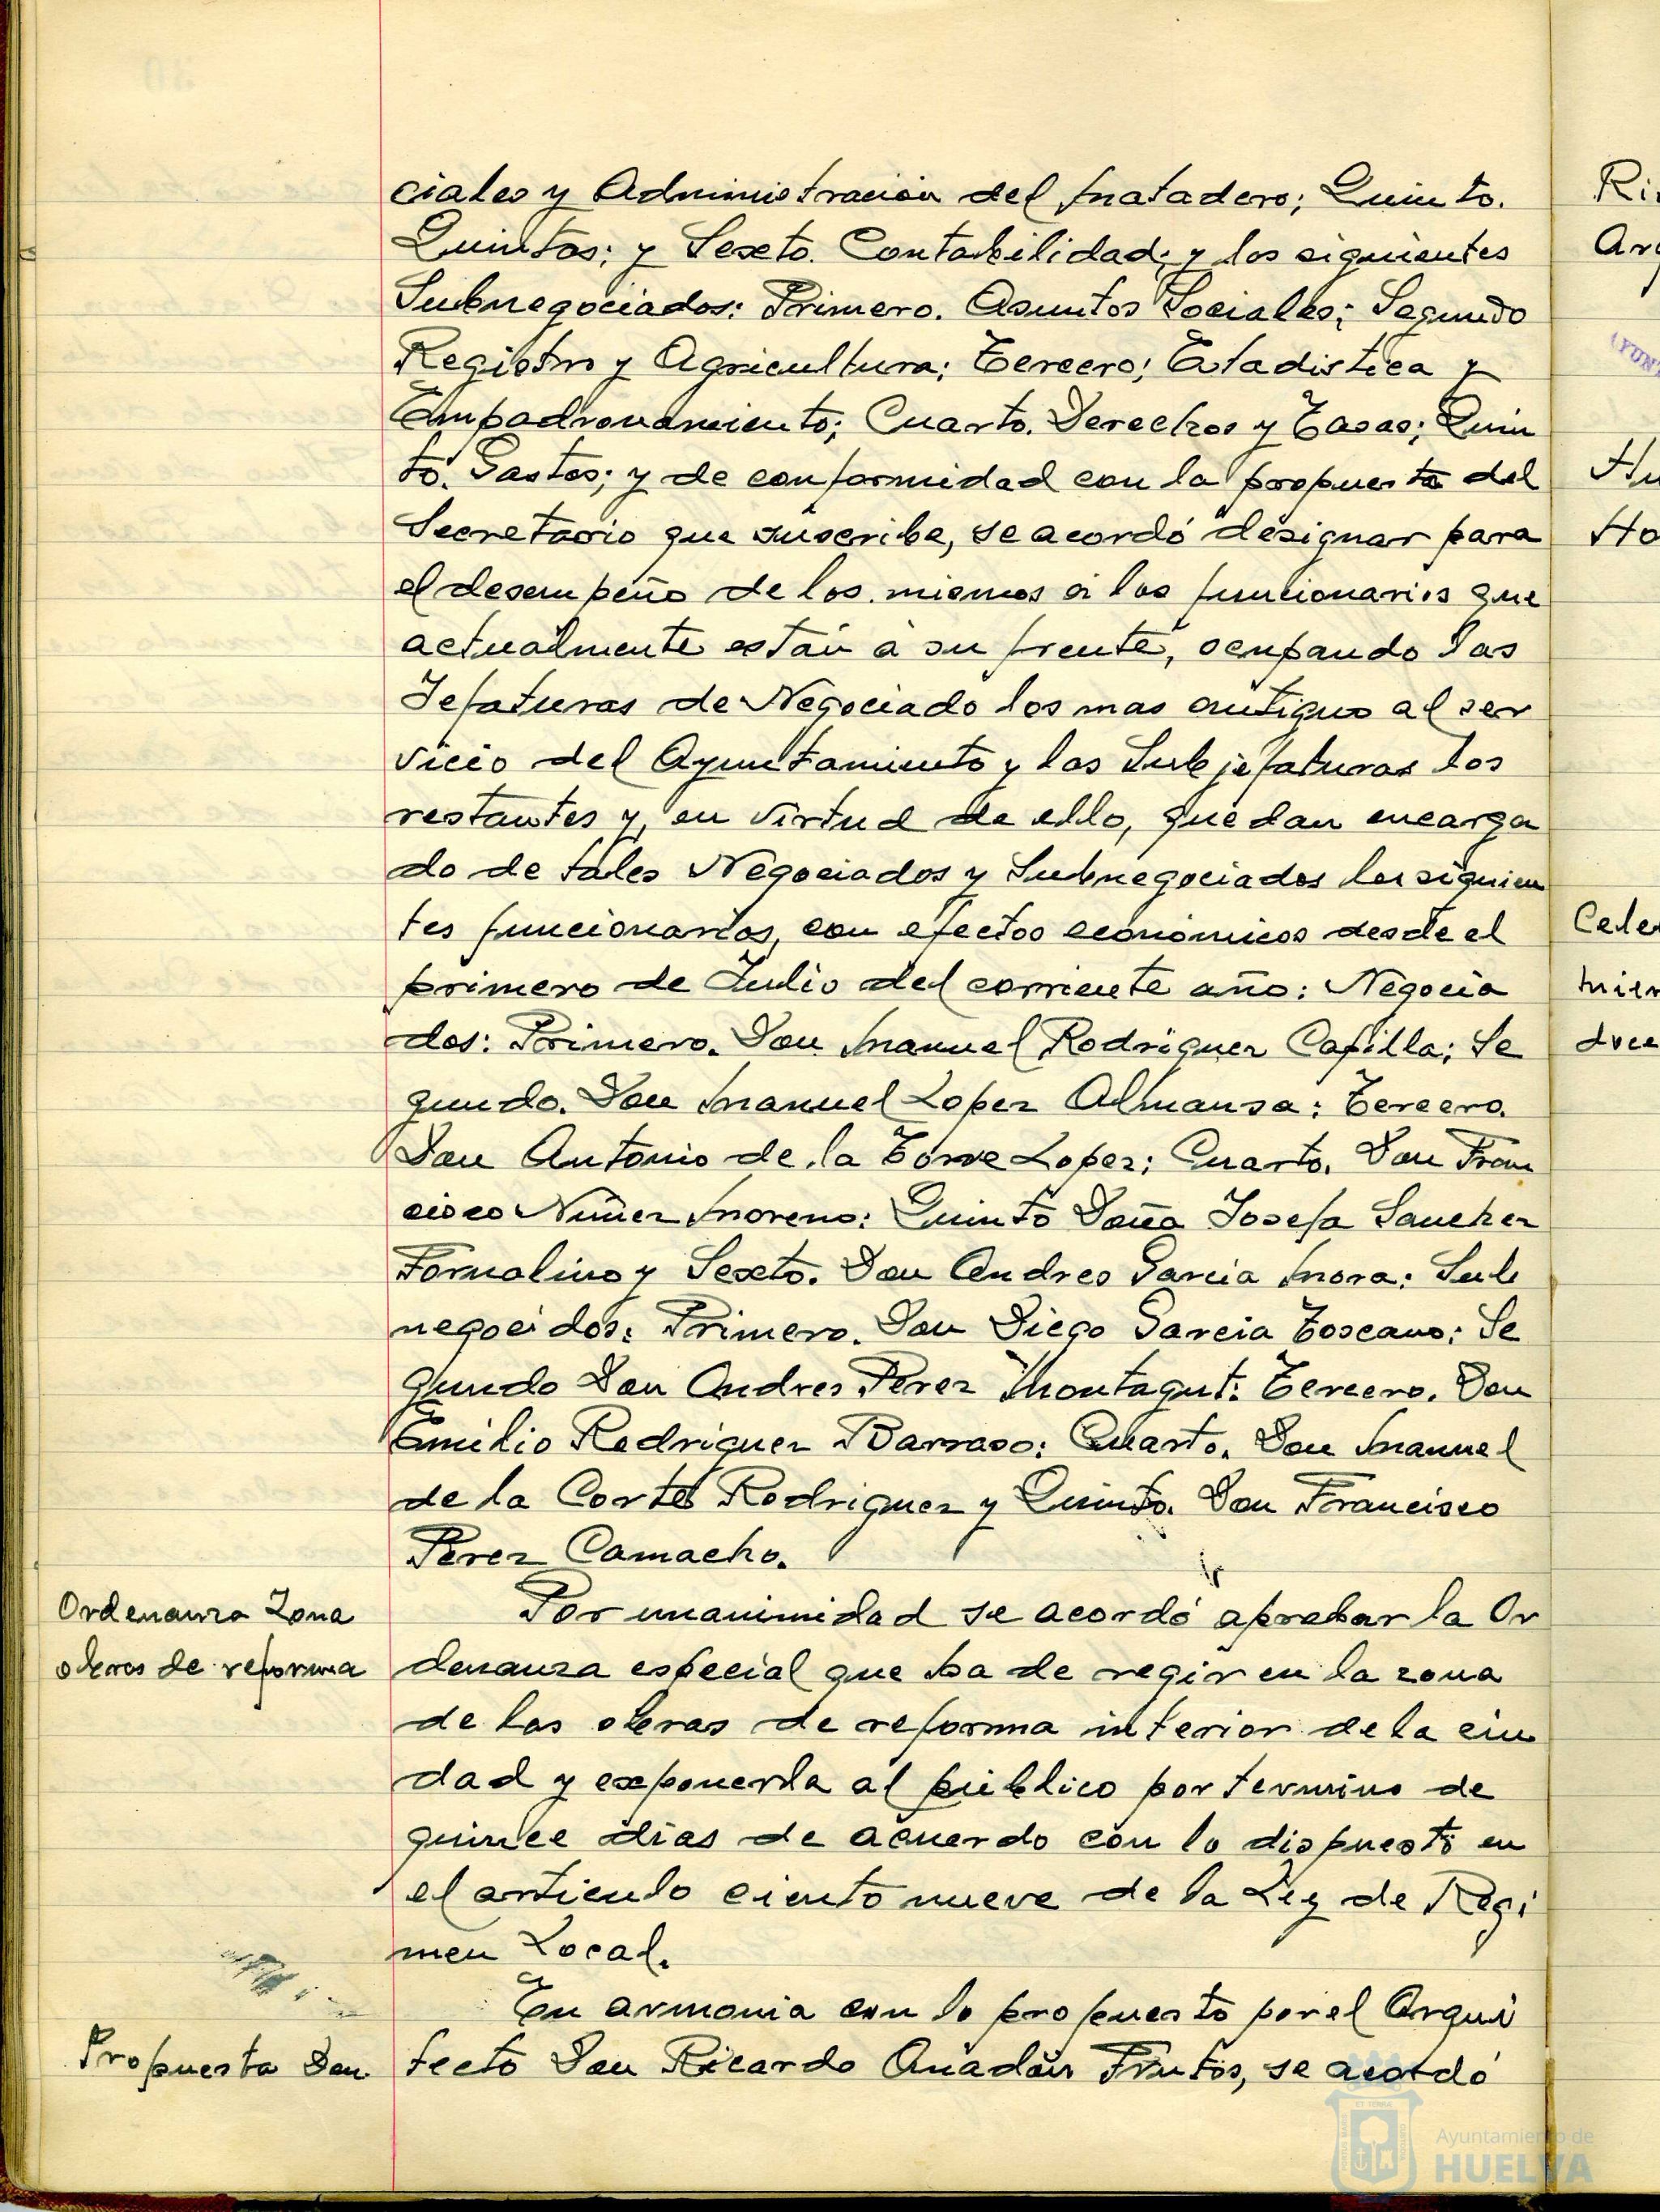 ciales y Administración del Matadero; Quinto.
Quintas; y Sexto. Contabilidad; y los siguientes
Subnegociados: Primero. Asuntos Sociales; Segundo
Registro y Agricultura; Tercero; Estadistica y
Empadronamiento; Cuarto. Derechos y Tasas; Quin
to. Gastos; y de conformidad con la propuesta del
Secretario que suscribe, se acordó designar para
el desempeño de los mismos a los funcionarios que
actualmente están a su frente, ocupando las
Jefaturas de Negociado los mas antiguo al ser
vicio del Ayuntamiento y las Subjefaturas los
restantes y, en virtud de ello, quedan encarga
do de tales Negociados y Subnegociados los siguien
tes funcionarios, con efectos económicos desde el
primero de Julio del corriente año: Negocia
dos: Primero. Don Manuel Rodriguez Capilla; Se
gundo. Don Manuel Lopez Almansa: Tercero.
Don Antonio de la Torre Lopez; Cuarto. Don Fran
cisco Nuñez Moreno: Quinto Doña Josefa Sanchez
Fornalino y Sexto. Don Andres Garcia Mora: Sub
negocidos: Primero. Don Diego Garcia Toscano: Se
gundo Don Andres Perez Montagut: Tercero. Don
Emilio Rodriguez Barraso: Cuarto. Don Manuel
de la Corte Rodriguez y Quinto. Don Francisco
Perez Camacho.
Ordenanza Zona
obras de reforma
Por unanimidad se acordó aprobar la Or
denanza especial que ha de regir en la zona
de las obras de reforma interior de la ciu
dad y exponerla al público por termino de
quince dias de acuerdo con lo dispuesto en
el articulo ciento nueve de la Ley de Regi
men Local.
Propuesta Don
En armonia con lo propuesto por el Arqui
tecto Don Ricardo Anadón Frutos, se acordó
Ayuntamiento de
HUELVA